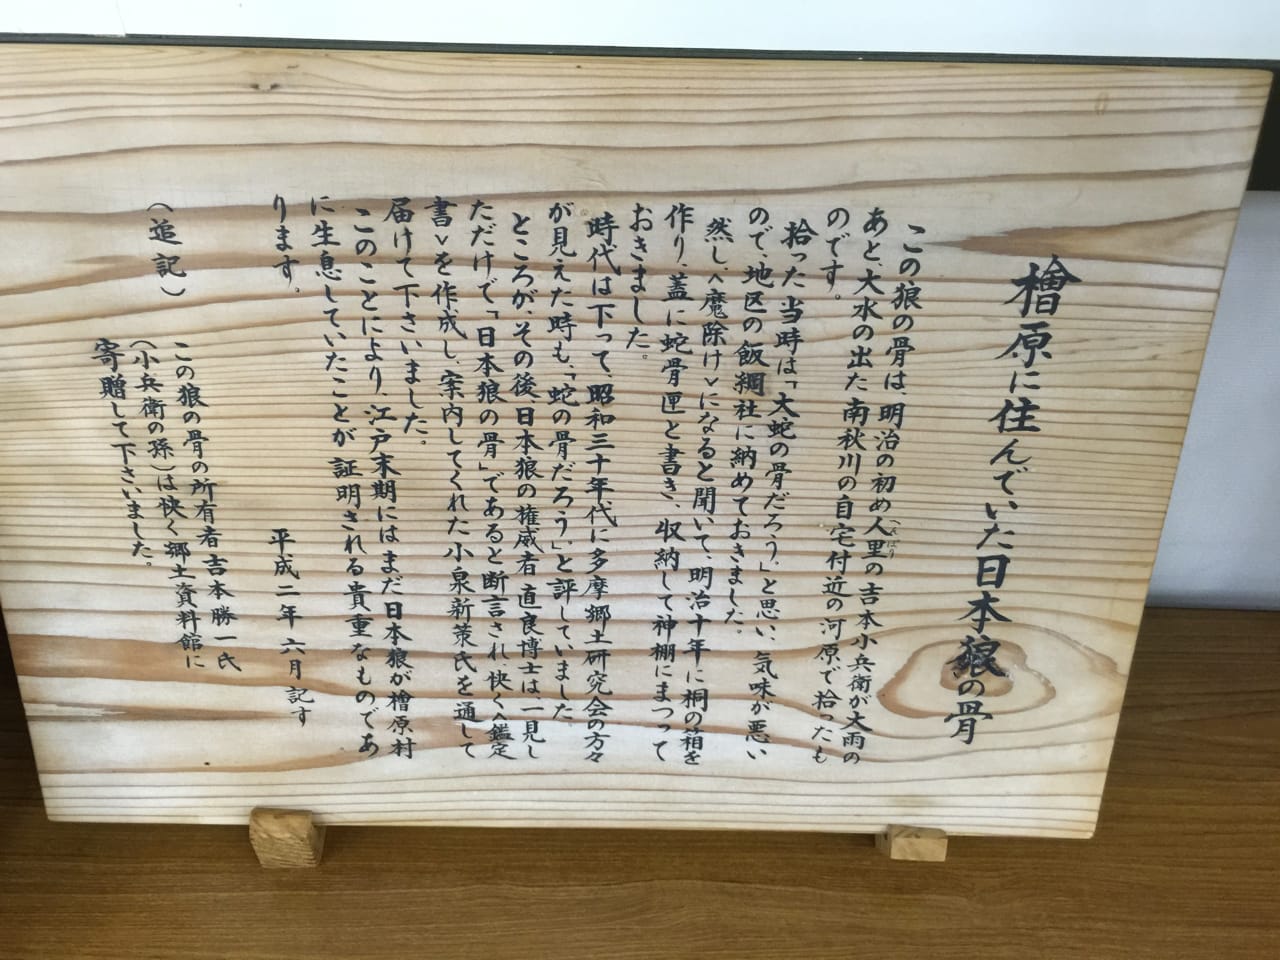 檜原に住んでいた日本狼の骨
この狼の骨は、明治の初め人里の吉本小兵衛が大雨の
へんぼり
あと、大水の出た南秋川の自宅付近の河原で拾ったも
のです。
拾った当時は「大蛇の骨だろう」と思い、気味が悪い
ので、地区の飯綱社に納めておきました。
然し、<魔除け>になると聞いて、明治十年に桐の箱を
作り、蓋に蛇骨匣と書き、収納して神棚にまつって
おきました。
時代は下って、昭和三十年代に多摩郷土研究会の方々
が見えた時も、「蛇の骨だろう」と評していました。
ところが、その後、日本狼の権威者直良博士は、一見し
ただけで、「日本狼の骨」であると断言され、快く<鑑定
書>を作成し、案内してくれた小泉新策氏を通して
届けて下さいました。
このことにより、江戸末期にはまだ日本狼が檜原村
に生息していたことが証明される貴重なものであ
ります。
平成二年六月記す
(追記)
この狼の骨の所有者吉本勝一氏
(小兵衛の孫)は快く郷土資料館に
寄贈して下さいました。